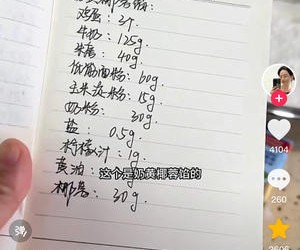 鸡蛋: 3个
牛奶: 125g.
米糖 40g.
低筋面粉: 60g
玉米淀粉: 15g.
奶粉: 30g.
盐: 0.5g.
柠檬汁: 1g.
黄油:
椰蓉: 30g.
这个是奶黄椰蓉馅的
4104
260
弹